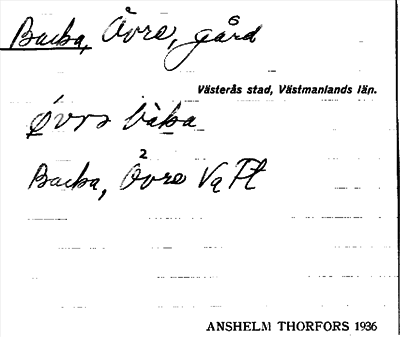 Backa, Övre, gård
Västerås stad, Västmanlands län.
øvrə bàka
Backa, Övre Va Ft
2
ANSHELM THORFORS 1936